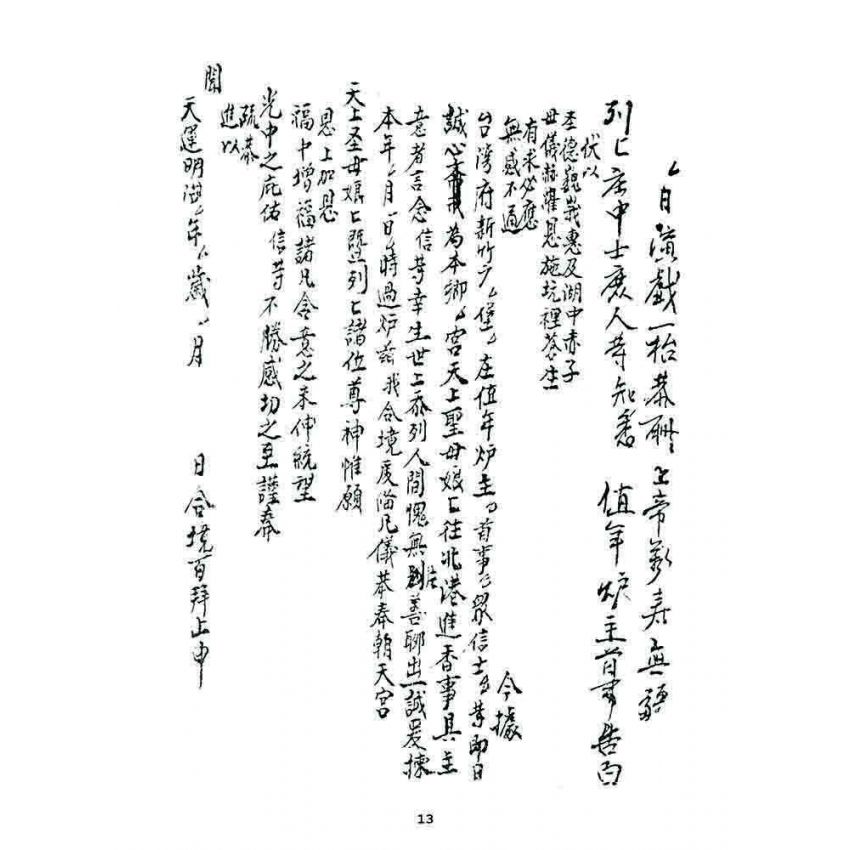 日演戲一枱恭酧　上帝萬壽無疆
列〻庄中士庶人等知悉　值年炉主首事告白
伏以
圣德巍峩惠及湖中赤子
母儀赫濯恩施坑裡蒼生
有求必應
無感不通
今據
台灣府新竹　堡　庄值年炉主　首事　眾信士　等即日
誠心為本鄉　宮天上聖母娘〻往北港進香事具主
意者言念信等幸生世上忝列人間愧無善聊出一誠爰擇
本年　月　日　時過炉　我合境虔偹凡儀恭奉朝天宮
天上圣母娘〻暨列〻諸位尊神惟願
恩上加恩
福中增福諸凡合意之未伸統望
光中之庇佑信等不勝感切之至謹奉
疏恭
進以
聞
天運明治　年　歲　月　日合境百拜上申
13